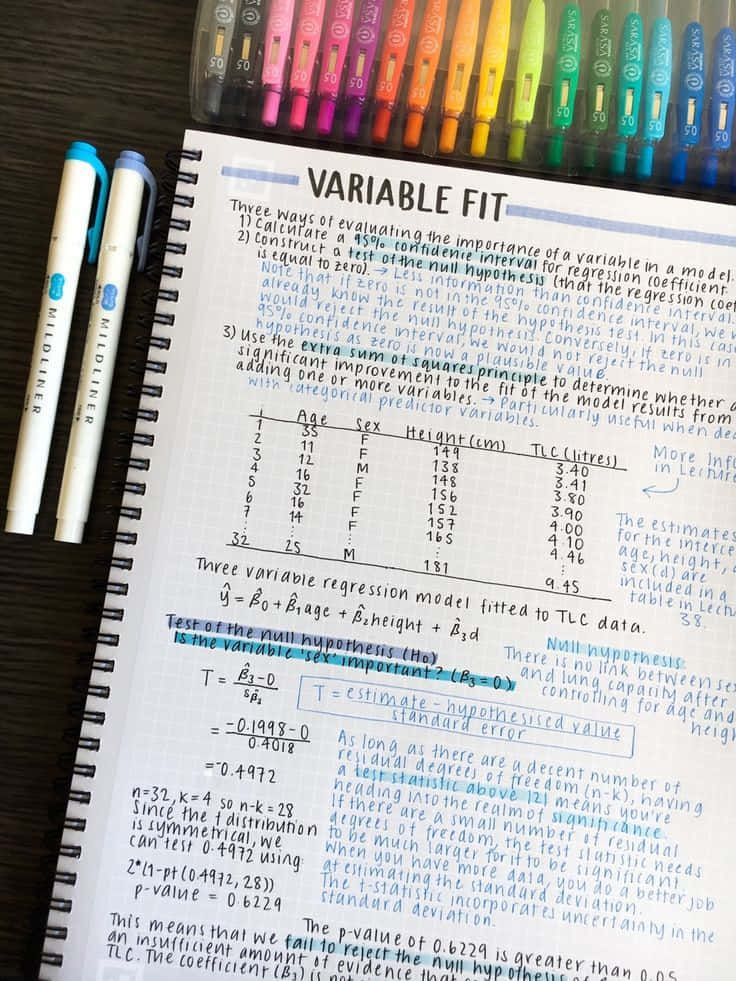 SARASA SARASA SARASA SARASA SARASA SARASA SARASA SARASA SARASA SARASA
0.5 0.5 0.5 0.5 0.5 0.5 0.5 0.5 0.5 0.5 0.5 0.5
MILDLINER
MILDLINER
VARIABLE FIT
Three ways of evaluating the importance of a variable in a model.
1) Calculate a 95% confidence interval for regression coefficient
2) Construct a test of the null hypothesis (that the regression coef
is equal to zero). → Less information than confidence interval.
Note that if zero is not in the 95% confidence interval, we
already know the result of the hypothesis test. In this case
would reject the null hypothesis. Conversely, if zero is in
95% confidence interval, we would not reject the null
hypothesis as zero is now a plausible value.
3) Use the extra sum of squares principle to determine whether a
significant improvement to the fit of the model results from
adding one or more variables. → Particularly useful when
with categorical predictor variables.
i Age Sex Height (cm) TLC (litres)
1 35 F 149 3.40
2 11 F 138 3.41
3 12 M 148 3.80
4 16 F 156 3.90
5 32 F 152 4.00
6 16 F 157 4.10
7 14 F 165 4.46
⋮ ⋮ ⋮ ⋮ ⋮
32 25 M 181 9.45
More Info
in Lecture
The estimates
for the interce
age, height,
sex(d) are
included in a
table in Lectu
38.
Three variable regression model fitted to TLC data.
ŷ = β̂0 + β̂1age + β̂2height + β̂3d
Test of the null hypothesis (H0)
Is the variable 'sex' important? (β3 = 0)
Null hypothesis:
There is no link between sex
and lung capacity after
controlling for age and
heigh
T = β̂3 - 0 / sβ̂3
T = estimate - hypothesised value / standard error
= -0.1998 - 0 / 0.4018
= -0.4972
As long as there are a decent number of
residual degrees of freedom (n-k), having
a test statistic above |2| means you're
heading into the realm of significance.
If there are a small number of residual
degrees of freedom, the test statistic needs
to be much larger for it to be significant.
When you have more data, you do a better job
at estimating the standard deviation.
The t-statistic incorporates uncertainty in the
standard deviation.
n=32, k=4 so n-k = 28
Since the t distribution
is symmetrical, we
can test 0.4972 using:
2*(1-pt(0.4972, 28))
p-value = 0.6229
The p-value of 0.6229 is greater than 0.05
This means that we fail to reject the null hypothesis
an insufficient amount of evidence that
TLC. The coefficient (β3) is not